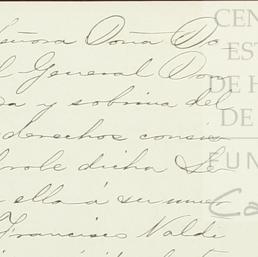 Señora Doña Do-
l General Don
sa y sobrina del
derechos consis
brole dicha Se
ella á su mue
Francisco Valdi
CEN
EST
DE H
DE
FUN
Ca